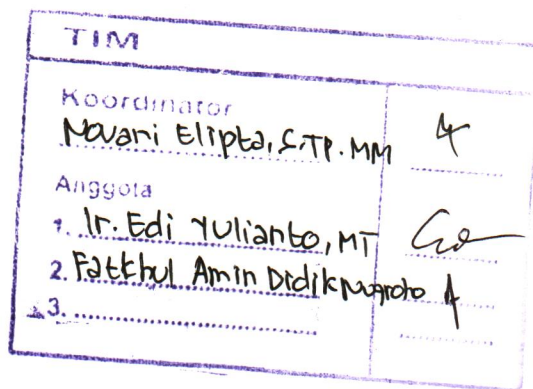 TIM
Koordinator
Novari Elipta, S.TP. MM
Anggota
1. Ir. Edi Yulianto, MT
2. Fatkhul Amin Didik Nugroho
3.